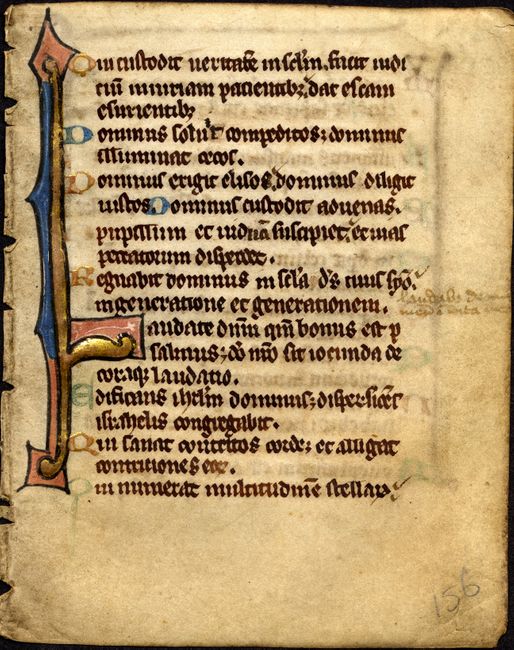 Qui custodit veritatē in sclm̄. facit iudi
ciū iniuriam pacientibz. dat escam
esurientibz
Dominus soluit compeditos; dominus
illuminat cecos.
Dominus erigit elisos. dominus diligit
iustos. Dominus custodit aduenas.
pupillum et viduā suscipiet. et vias
peccatorum disperdet.
Regnabit dominus in scl̄a d̄s tuus syō.
in generatione et generationem.
Laudate dn̄m qm̄ bonus est p
salmus; dō nr̄o sit iocunda de
coraqz laudatio.
Edificans ihrlm̄ dominus; dispersiōes
israhelis congregabit.
Qui sanat contritos corde; et alligat
contritiones eoꝝ.
Qui numerat multitudinē stellaꝝ.
laudabo
156